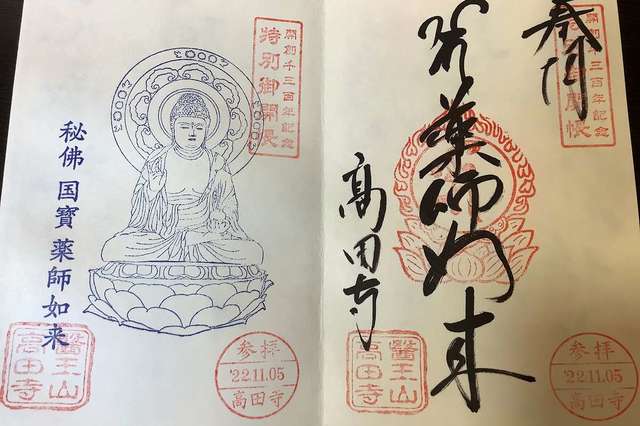 奉拝
開創千三百年記念
特別御開帳
薬師如来
高田寺
醫王山
高田寺
参拝
'22.11.05
高田寺
開創千三百年記念
特別御開帳
秘佛 国寳 薬師如来
醫王山
高田寺
参拝
'22.11.05
高田寺